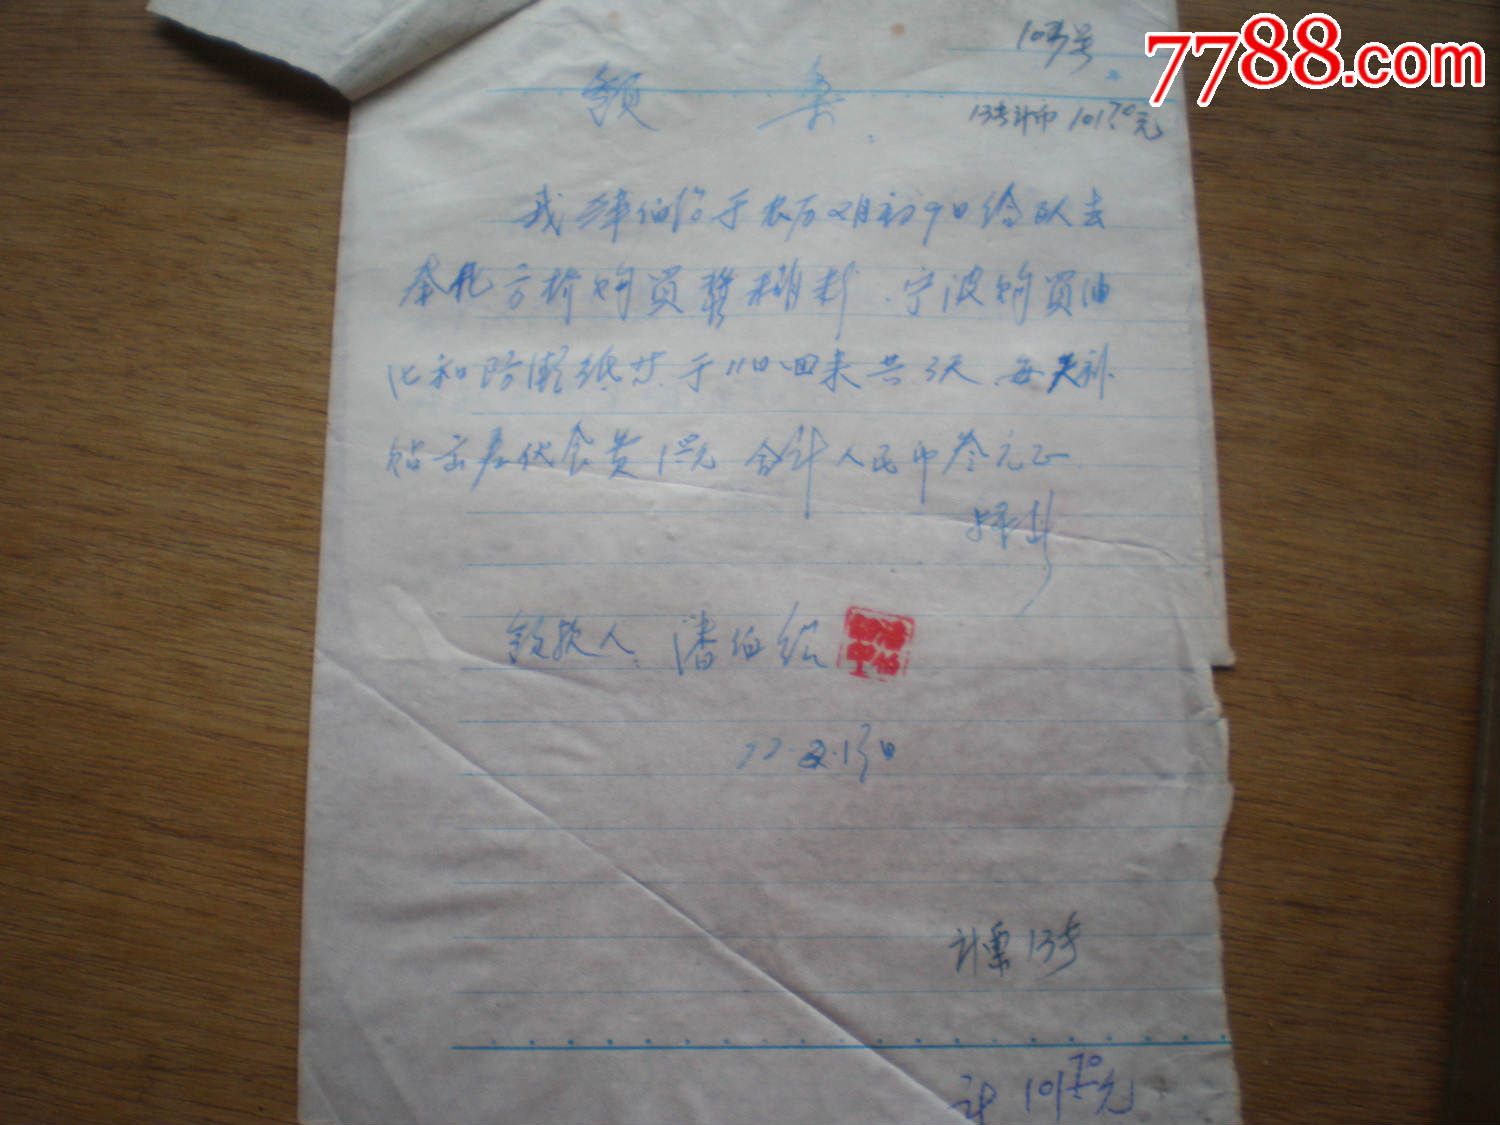 7788.com
103号
领 条
13号计币 101.70元
我 伯 于农历2月初9日给队去
奉化方桥购买 糊料、宁波购买油
化和防潮纸 于11日回来共3天、每天补
贴 伙食费1元 合计人民币叁元正.
领款人: 潘伯纶
77.2.13日
计票13
计 101.70元